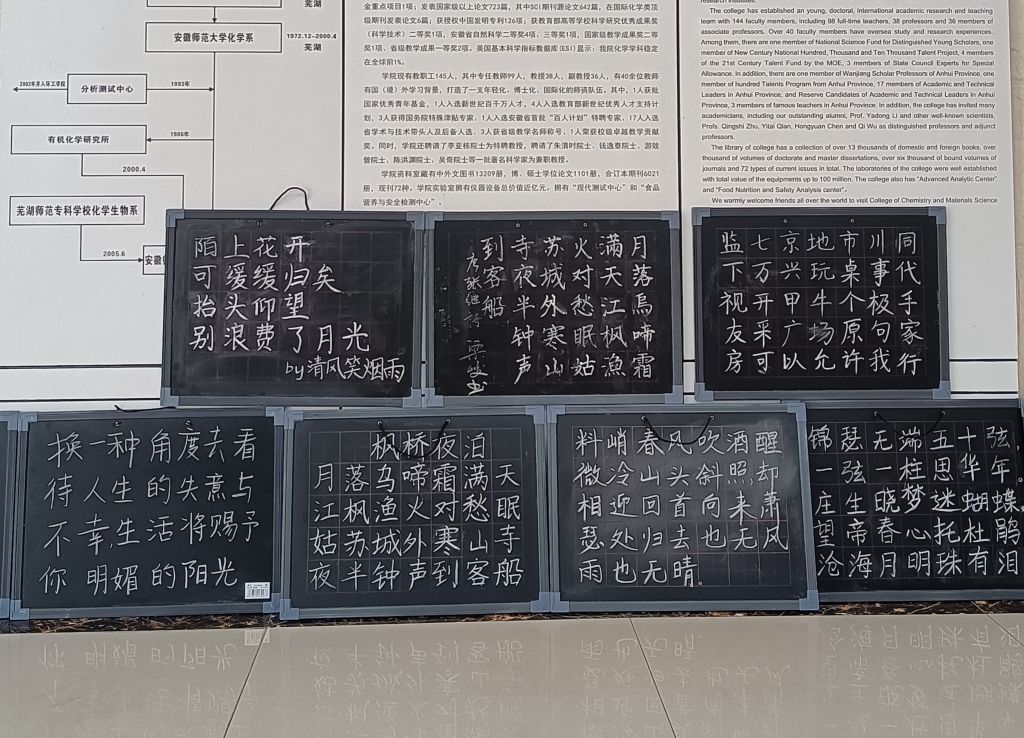 芜湖
安徽师范大学化学系
1972.12-2000.4
芜湖
2002年并入环工学院
分析测试中心
1993年
有机化学研究所
1986年
2000.4
芜湖师范专科学校化学生物系
2005.6
安徽师
金重点项目1项；发表国家级以上论文723篇，其中SCI期刊源论文642篇，在国际化学类顶
级期刊发表论文6篇；获授权中国发明专利126项；获教育部高等学校科学研究优秀成果奖
（科学技术）二等奖1项、安徽省自然科学二等奖4项、三等奖1项，国家级教学成果奖二等
奖1项、省级教学成果一等奖2项。美国基本科学指标数据库(ESI)显示：我院化学学科稳定
在全球前1%。
学院现有教职工145人，其中专任教师99人，教授38人，副教授36人，有40余位教师
有国（境）外学习背景，打造了一支年轻化、博士化、国际化的师资队伍。其中，1人获批
国家优秀青年基金，1人入选新世纪百千万人才，4人入选教育部新世纪优秀人才支持计
划，3人获得国务院特殊津贴专家，1人入选安徽省首批“百人计划”特聘专家，17人入选
省学术与技术带头人及后备人选，3人获省级教学名师称号，1人荣获校级卓越教学贡献
奖。同时，学院还聘请了李亚栋院士为特聘教授，聘请了朱清时院士、钱逸泰院士、游效
曾院士、陈洪渊院士、吴奇院士等一批著名科学家为兼职教授。
学院资料室藏有中外文图书13209册，博、硕学位论文1101册，合订本期刊6021
册，现刊72种。学院实验室拥有仪器设备总价值近亿元，拥有“现代测试中心”和“食品
营养与安全检测中心”。
research institutes.
The college has established an young, doctoral, international academic research and teaching
team with 144 faculty members, including 98 full-time teachers, 38 professors and 36 members of
associate professors. Over 40 faculty members have oversea study and research experiences.
Among them, there are one member of National Science Fund for Distinguished Young Scholars, one
member of New Century National Hundred, Thousand and Ten Thousand Talent Project, 4 members
of the 21st Century Talent Fund by the MOE, 3 members of State Council Experts for Special
Allowance. In addition, there are one member of Wanjiang Scholar Professors of Anhui Province, one
member of hundred Talents Program from Anhui Province, 17 members of Academic and Technical
Leaders in Anhui Province, and Reserve Candidates of Academic and Technical Leaders in Anhui
Province, 3 members of famous teachers in Anhui Province. In addition, the college has invited many
academicians, including our outstanding alumni, Prof. Yadong Li and other well-known scientists,
Profs. Qingshi Zhu, Yitai Qian, Hongyuan Chen and Qi Wu as distinguished professors and adjunct
professors.
The library of college has a collection of over 13 thousands of domestic and foreign books, over
thousand of volumes of doctorate and master dissertations, over six thousand of bound volumes of
journals and 72 types of current issues in total. The laboratories of the college were well established
with total value of the equipments up to 100 million. The college also has "Advanced Analytic Center"
and "Food Nutrition and Safety Analysis center".
We warmly welcome friends all over the world to visit College of Chemistry and Materials Science
陌上花开
可缓缓归矣
抬头仰望
别浪费了月光
by清风笑烟雨
月落烏啼霜
满天江枫漁
火对愁眠姑
苏城外寒山
寺夜半钟声
到客船
唐张继诗
同代手家行
川事极句我
市桌个原许
地玩牛场允
京兴甲广以
七万开采可
监下视友房
换一种角度去看
待人生的失意与
不幸,生活将赐予
你明媚的阳光
枫桥夜泊
月落乌啼霜满天
江枫渔火对愁眠
姑苏城外寒山寺
夜半钟声到客船
料峭春风吹酒醒
微冷山头斜照却
相迎回首向来萧
瑟处归去也无风
雨也无晴。
锦瑟无端五十弦,
一弦一柱思华年。
庄生晓梦迷蝴蝶。
望帝春心托杜鹃
沧海月明珠有泪